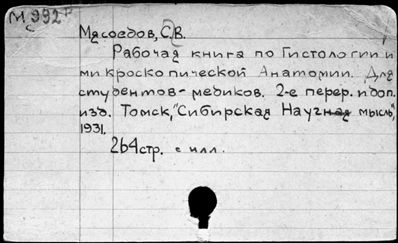 М 992
Мясоедов, С.В.
Рабочая книга по Гистологии и
микроскопической Анатомии. Для
студентов-медиков. 2-е перер. и доп.
изд. Томск, "Сибирская Научная мысль",
1931.
264 стр. с илл.